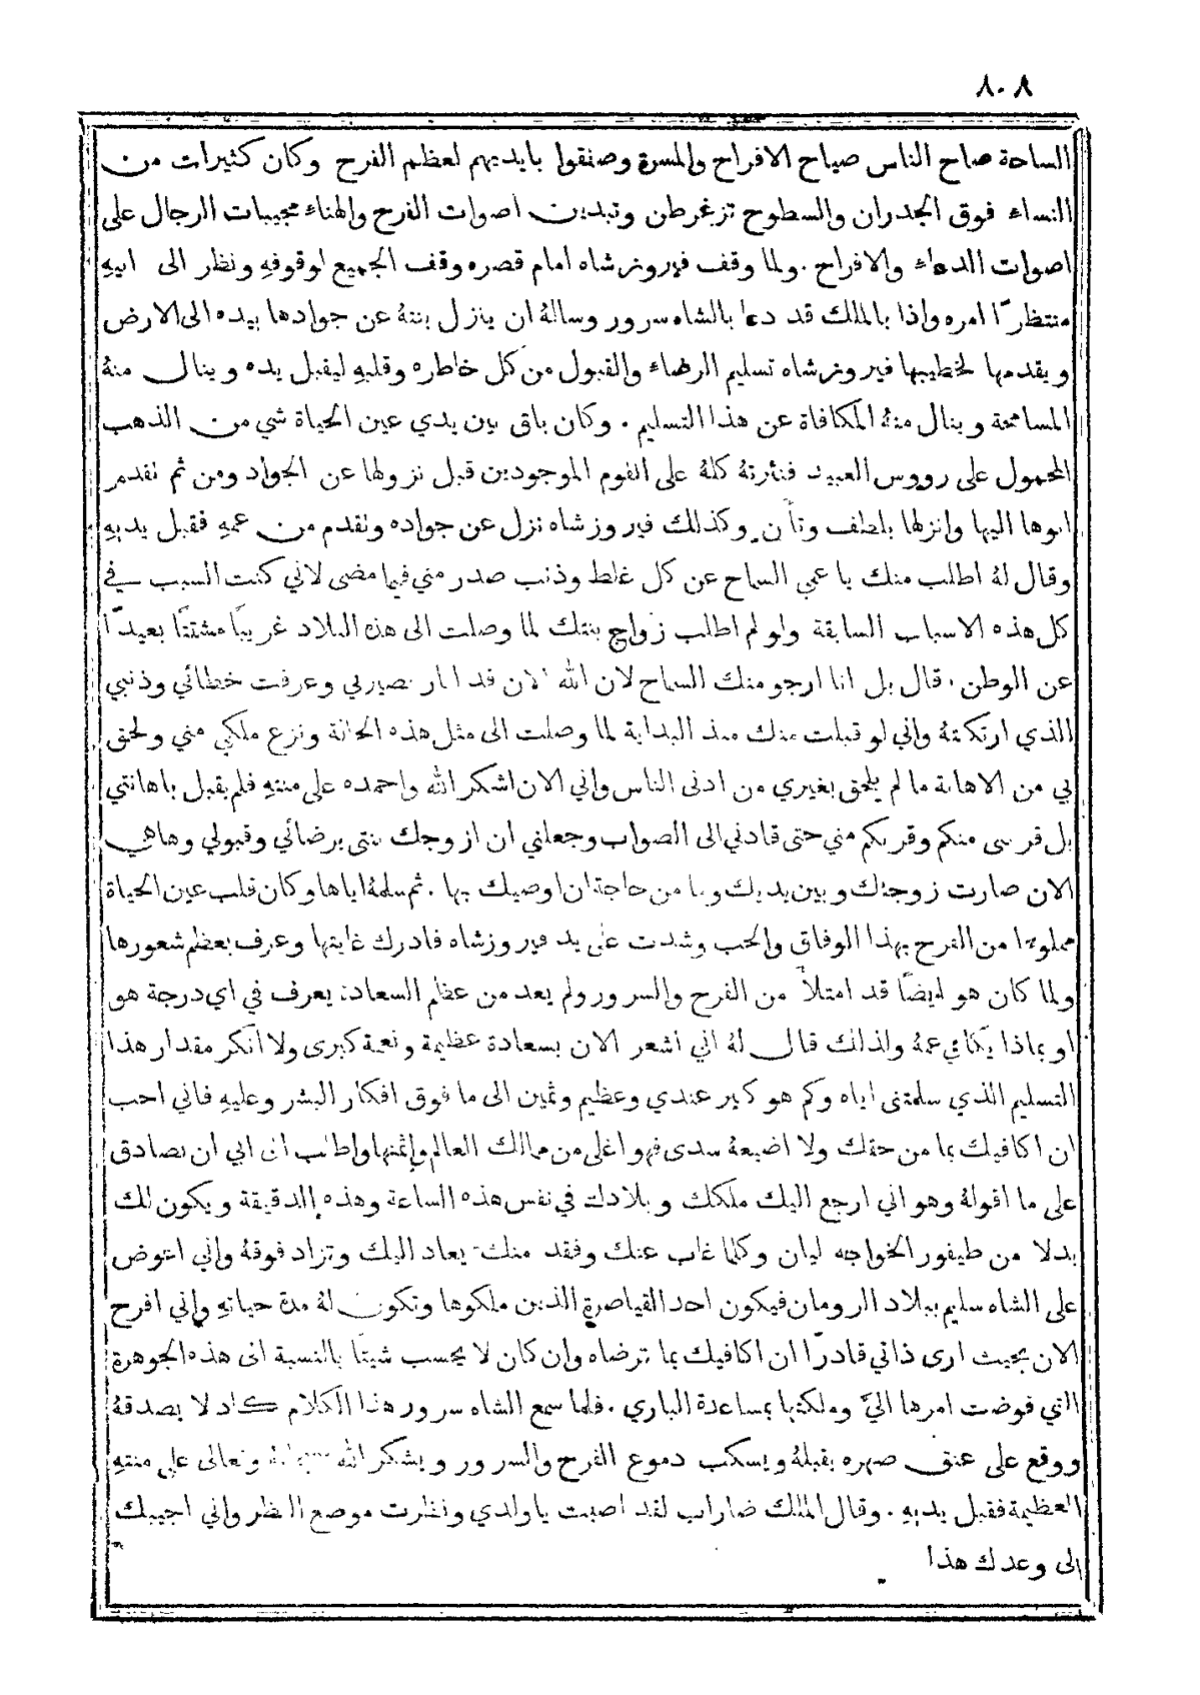 ٨٠٨
الساحة صاح الناس صياح الافراح والمسرة وصفقوا بايديهم لعظم الفرح وكان كثيرات من
النساء فوق الجدران والسطوح تزغرطن وتبدين اصوات الفرح والهناء مجيبات الرجال على
اصوات الدعاء والافراح . ولما وقف فيروزشاه امام قصره وقف الجميع لوقوفهِ ونظر الى ابيهِ
منتظرًا امره واذا بالملك قد دعا بالشاه سرور وسالهُ ان ينزل بنتهُ عن جوادها بيده الى الارض
ويقدمها لخطيبها فيروزشاه تسليم الرضاء والقبول من كل خاطره وقلبهِ ليقبل يده وينال منهُ
المسامحة وينال منهُ المكافاة عن هذا التسليم . وكان باقٍ بين يدي عين الحياة شي من الذهب
المحمول على رووس العبيد فنثرتهُ كلهُ على القوم الموجودين قبل نزولها عن الجواد ومن ثم تقدم
ابوها اليها وانزلها بلطف وتأنٍ وكذلك فيروزشاه نزل عن جواده وتقدم من عمهِ فقبل يديهِ
وقال لهُ اطلب منك يا عمي السماح عن كل غلط وذنب صدر مني فيما مضى لاني كنت السبب في
كل هذه الاسباب السابقة ولو لم اطلب زواج بنتك لما وصلت الى هذه البلاد غريبًا مشتتًا بعيدًا
عن الوطن . قال بل انا ارجو منك السماح لان الله الان قد انار بصيرتي وعرفت خطائي وذنبي
الذي ارتكبتهُ واني لو قبلت منك منذ البداية لما وصلت الى مثل هذه الحالة ونزع ملكي مني ولحق
بي من الاهانة ما لم يلحق بغيري من ادنى الناس واني الان اشكر الله واحمده على منتهِ فلم يقبل باهانتي
بل قربني منكم وقربكم مني حتى قادني الى الصواب وجعلني ان ازوجك بنتي برضائي وقبولي وها هي
الان صارت زوجتك وبين يديك وما من حاجة ان اوصيك بها . ثم سلمهُ اياها وكان قلب عين الحياة
مملوءا من الفرح بهذا الوفاق والحب وشدت على يد فيروزشاه فادرك غايتها وعرف بعظم شعورها
ولما كان هو ايضًا قد امتلأ من الفرح والسرور ولم يعد من عظم السعادة يعرف في اي درجة هو
او بماذا يكافي عمهُ ولذلك قال لهُ اني اشعر الان بسعادة عظيمة ونعمة كبرى ولا انكر مقدار هذا
التسليم الذي سلمتني اياه وكم هو كبير عندي وعظيم وثمين الى ما فوق افكار البشر وعليهِ فاني احب
ان اكافيك بما من حقك ولا اضيعهُ سدى فهو اغلى من ممالك العالم واثمنها واطلب الى ابي ان يصادق
على ما اقولهُ وهو اني ارجع اليك ملكك وبلادك في نفس هذه الساعة وهذه الدقيقة ويكون لك
بدلا من طيفور الخواجه ليان وكلما غاب عنك وفقد منك يعاد اليك وتزاد فوقهُ واني اعوض
على الشاه سليم ببلاد الرومان فيكون احد القياصرة الذين ملكوها وتكون لهُ مدة حياتهِ واني افرح
الان بحيث ارى ذاتي قادرًا ان اكافيك بما ترضاه وان كان لا يحسب شيئًا بالنسبة الى هذه الجوهرة
التي فوضت امرها اليَّ وملكتها بمساعدة الباري . فلما سمع الشاه سرور هذا الكلام كاد لا يصدقهُ
ووقع على عنق صهره يقبلهُ ويسكب دموع الفرح والسرور ويشكر الله سبحانهُ وتعالى على منتهِ
العظيمة فقبل يديهِ . وقال الملك ضاراب لقد اصبت يا ولدي ونظرت موضع النظر واني اجيبك
الى وعدك هذا